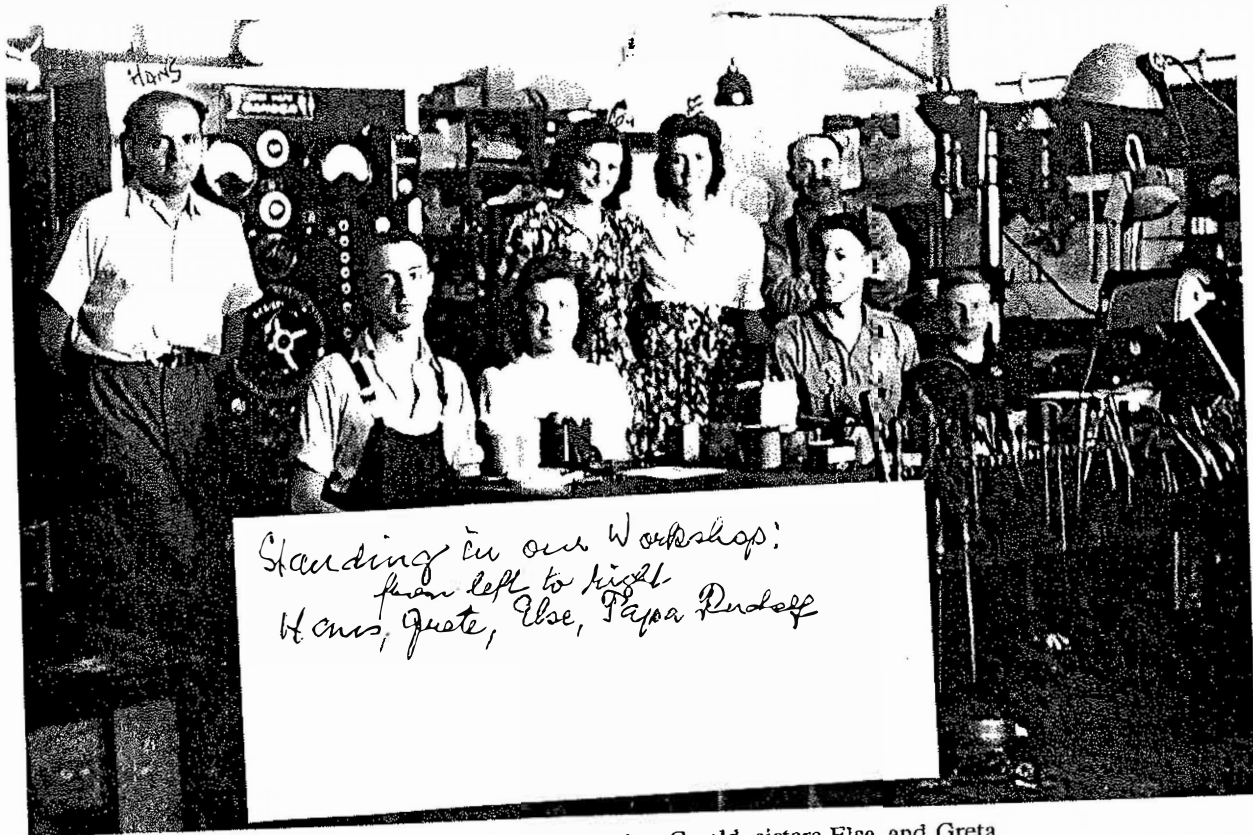 HANS
G. E
Standing in our Workshop:
from left to right
Hans, Grete, Else, Papa Rudolf
sisters Else and Greta